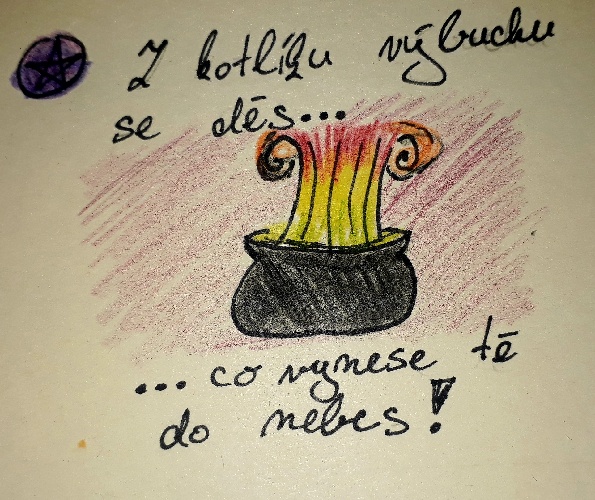 Z kotlíku výbuchu
se děs...
...co vynese tě
do nebes!